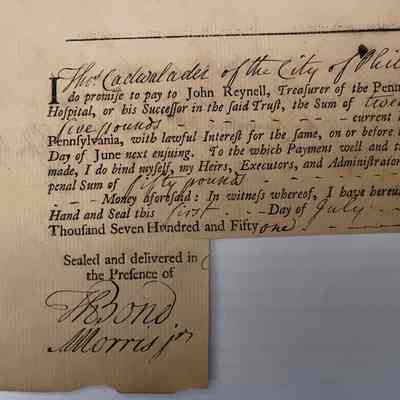 I Thos. Cadwalader of the City of Phil
do promise to pay to John Reynell, Treasurer of the Penn
Hospital, or his Successor in the said Trust, the Sum of twen
five pounds - - - - - - current
Pennsylvania, with lawful Interest for the same, on or before
Day of June next ensuing. To the which Payment well and t
made, I do bind myself, my Heirs, Executors, and Administrator
penal Sum of fifty pounds - - - - -
- - - Money aforesaid: In witness whereof, I have hereu
Hand and Seal this first - - - Day of July - -
Thousand Seven Hundred and Fifty one - - -
Sealed and delivered in
the Presence of
Th Bond
MMorris jr